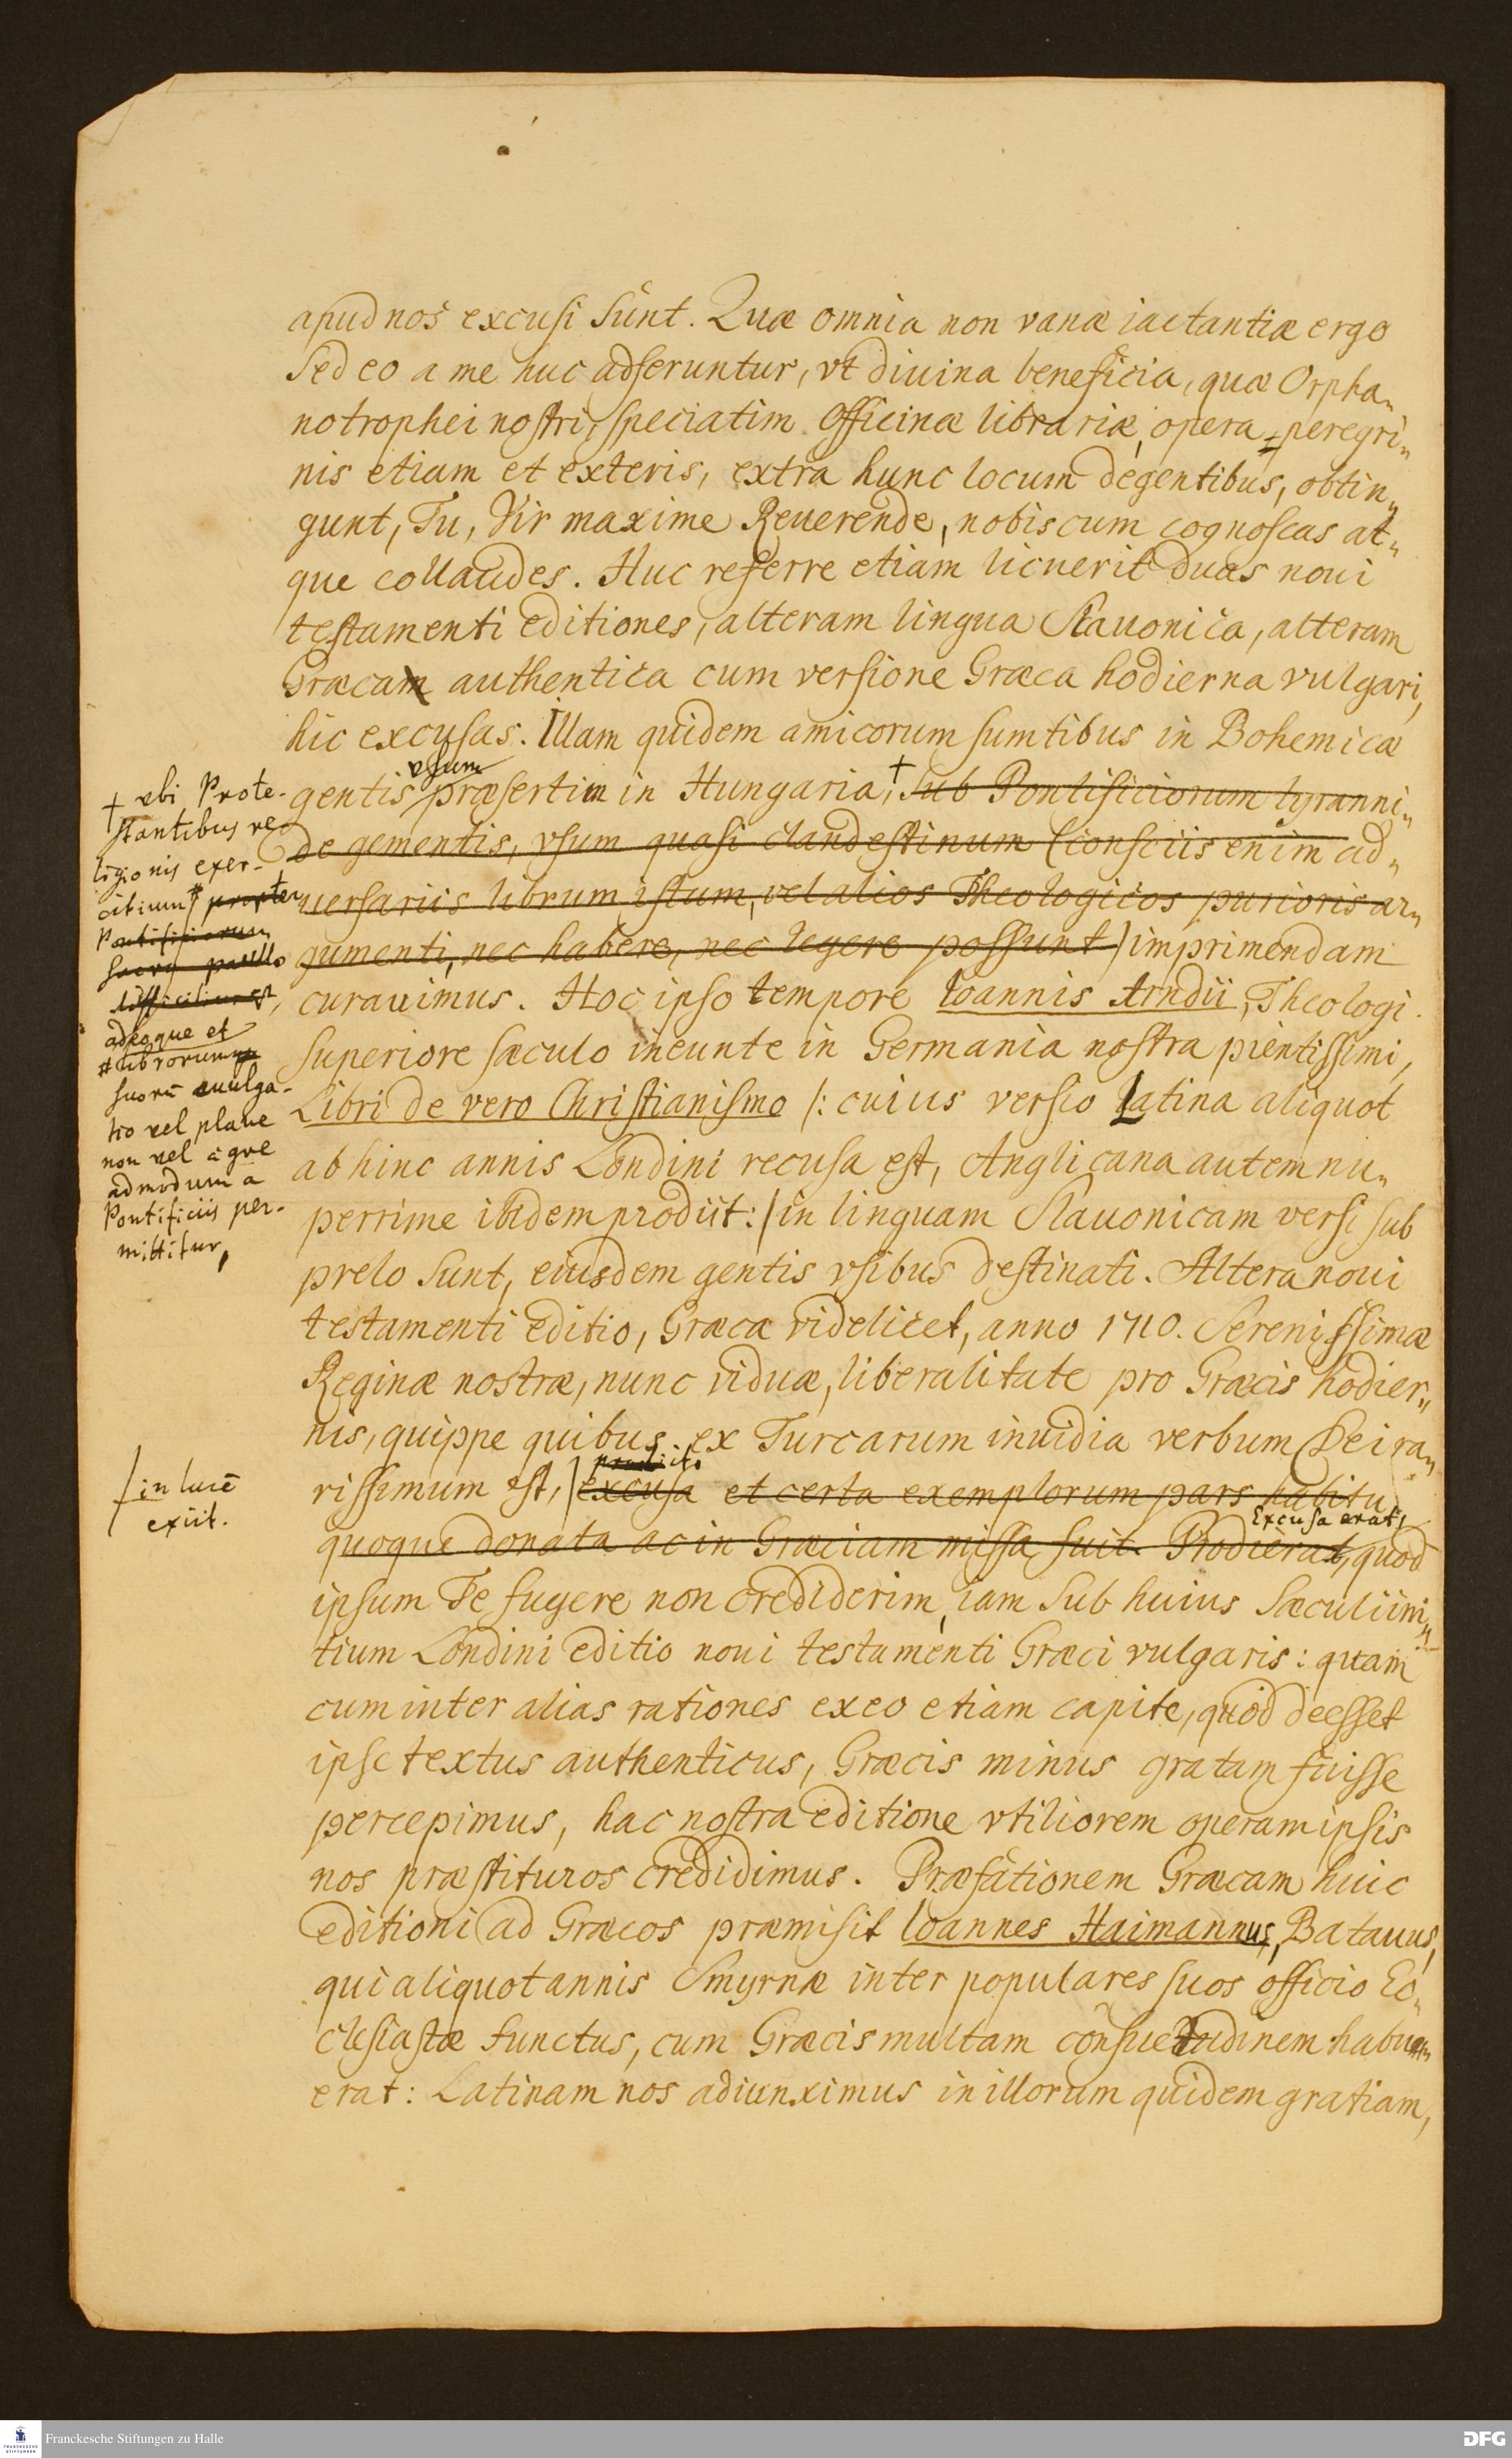 apud nos excusi sunt. Quæ omnia non vanæ iactantiæ ergo
sed eo a me huc adferuntur, vt diuina beneficia, quæ Orpha„
notrophei nostri, speciatim Officinæ librariæ, opera peregri„
nis etiam et exteris, extra hunc locum degentibus, obtin„
gunt, Tu, Vir maxime Reuerende, nobiscum cognoscas at„
que collaudes. Huc referre etiam licuerit duas noui
testamenti editiones, alteram lingua Slauonica, alteram
Græca authentica cum versione Græca hodierna vulgari,
hic excusas. Illam quidem amicorum sumtibus in Bohemicæ
vsum
gentis præsertim in Hungaria,† sub Pontificiorum tyranni„
de gementis, vsum quasi clandestinum (consciis enim ad„
uersariis librum istum, vel alios Theologicos purioris ar„
gumenti, nec habere, nec legere possunt) imprimendam
curauimus. Hoc ipso tempore Ioannis Arndii, Theologi
superiore sæculo ineunte in Germania nostra pientissimi,
Libri de vero Christianismo /: cuius versio Latina aliquot
abhinc annis Londini recusa est, Anglicana autem nu„
perrime ibidem prodiit :/ in linguam Slauonicam versi sub
prelo sunt, eiusdem gentis vsibus destinati. Altera noui
testamenti editio, Græca videlicet, anno 1710. Serenissimæ
Reginæ nostræ, nunc viduæ, liberalitate pro Græcis hodier„
nis, quippe quibus ex Turcarum inuidia verbum Dei ra„
prodiit.
rissimum est, / excusa et certa exemplorum pars habitu
Excusa erat,
quoque donata ac in Græciam missa fuit. Prodierat, quod
ipsum Te fugere non crediderim, iam sub huius sæculi ini„
tium Londini editio noui testamenti Græci vulgaris: quam
cum inter alias rationes ex eo etiam capite, quod deesset
ipse textus authenticus, Græcis minus gratam fuisse
percepimus, hac nostra editione vtiliorem operam ipsis
nos præstituros credidimus. Præfationem Græcam huic
editioni ad Græcos præmisit Ioannes Haimannus, Batauus,
qui aliquot annis Smyrnæ inter populares suos officio Ec„
clesiastæ functus, cum Græcis multam consuetudinem habu„
erat: Latinam nos adiunximus in illorum quidem gratiam,
† vbi Prote-
stantibus re
ligionis exer-
citium # propter
Pontificiorum
paullo
difficilius est,
adeoque et
# librorumque
suorū euulga-
tio vel plane
non vel ægre
admodum a
Pontificiis per-
mittitur,
/ in lucē
exiit.
Franckesche Stiftungen zu Halle
FRANCKESCHE
STIFTUNGEN
DFG